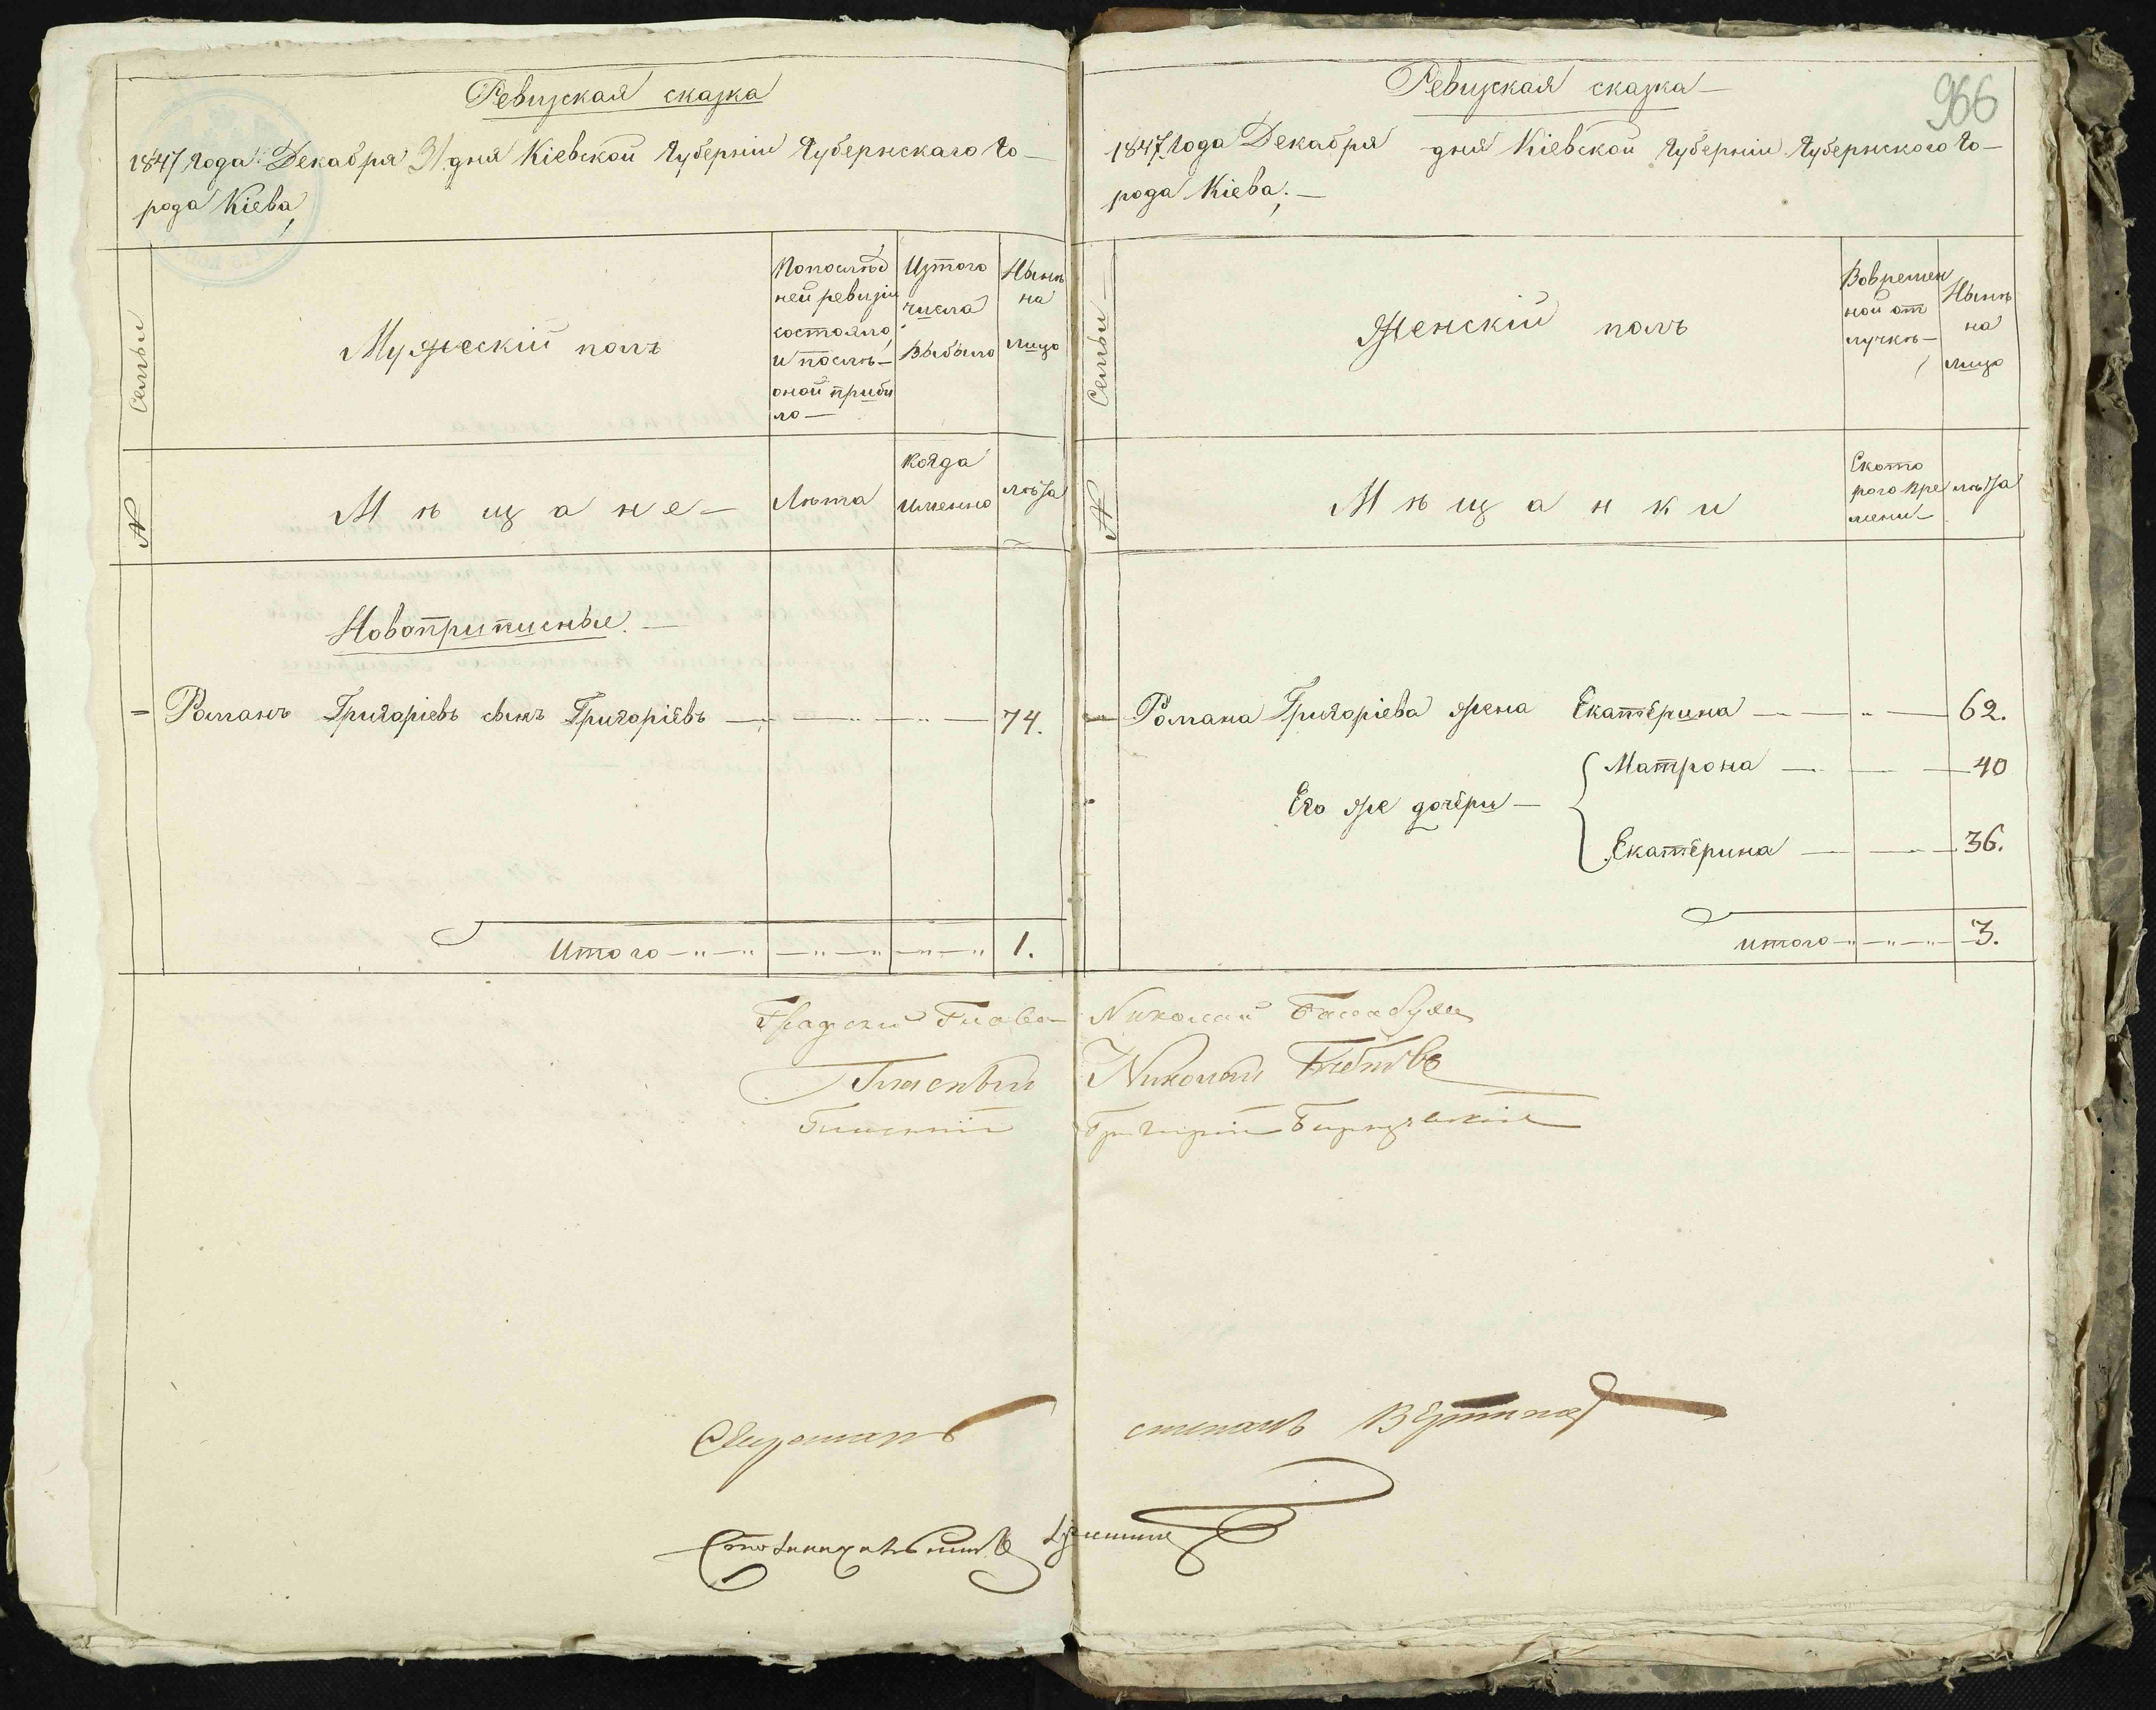 Ревизская сказка
1847 года Декабря 31 дня Кіевской Губерніи Губернскаго Го-
рода Кіева,
№ Семьи
Мужескій полъ
Попослѣд
ней ревизіи
состояло,
и послѣ-
оной прибы
ло-
Изтого
числа
Выбыло
Нынѣ
на
лицо
Мѣщане-
Лѣта
Когда
именно
лѣта
Новоприписные.-
Романъ Григоріевъ сынъ Григоріевъ 74.
Итого 1.
Ревизская сказка-
966
1847 года Декабря дня Кіевской Губерніи Губернского Го-
рода Кіева;-
№ Семьи-
Женскій полъ
Вовремен
ной от
лучкѣ-
Нынѣ
на
лицо
Мѣщанки
Ското
рого вре
мени-
лѣта
Романа Григоріева жена Екатерина 62.
Матрона 40
Его же дочери-
Екатерина 36.
Итого 3.
Градской Глава Николай
Гласный Николай
Гласный Григорій